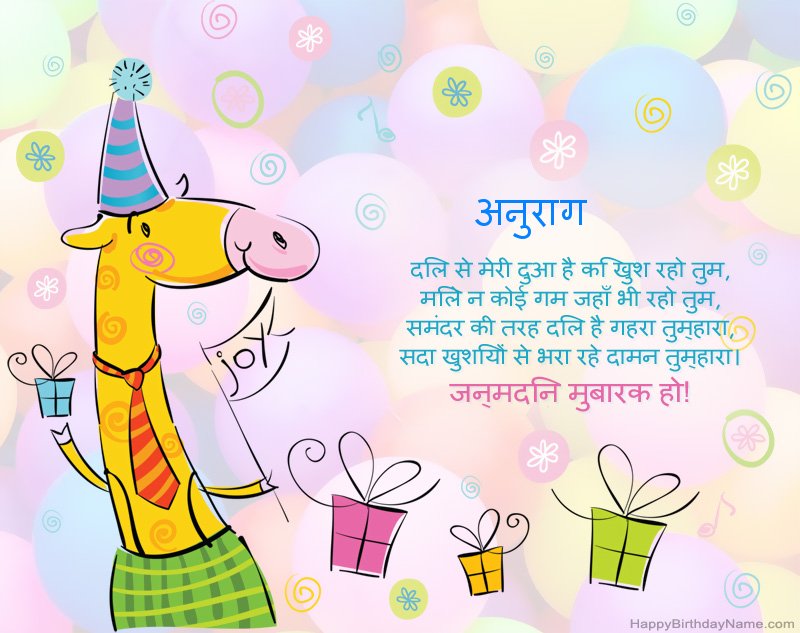 अनुराग
दिल से मेरी दुआ है कि खुश रहो तुम,
मिले न कोई गम जहाँ भी रहो तुम,
समंदर की तरह दिल है गहरा तुम्हारा,
सदा खुशियों से भरा रहे दामन तुम्हारा।
जन्मदिन मुबारक हो!
joy
HappyBirthdayName.com